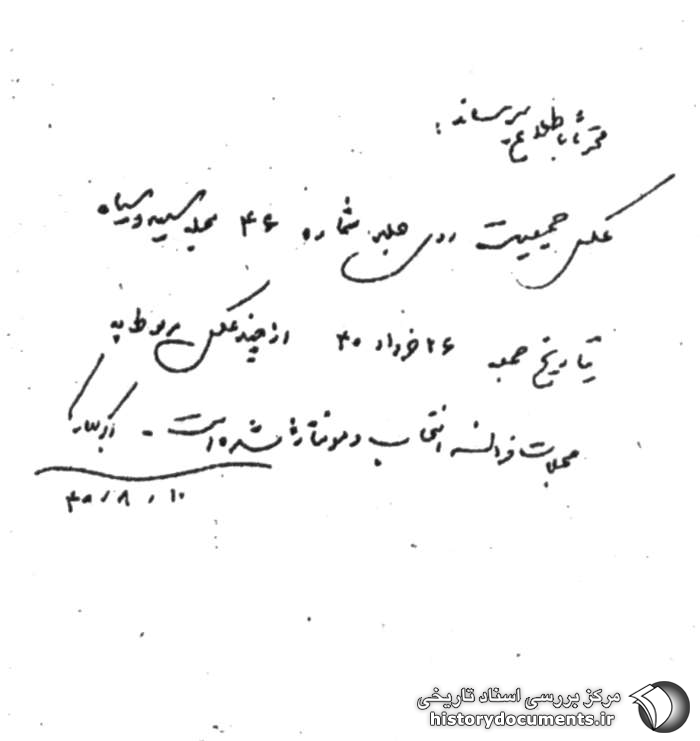 محترماً باطلاع میرساند:
عکس جمعیت روی جلد شماره ۴۶ مجله سپید و سیاه
بتاریخ جمعه ۲۶ خرداد ۴۰ از چند عکس مربوط به
مجلات فرانسه انتخاب و مونتاژ شده است -
۴۰/۸/۱۰
مرکز بررسی اسناد تاریخی
historydocuments.ir